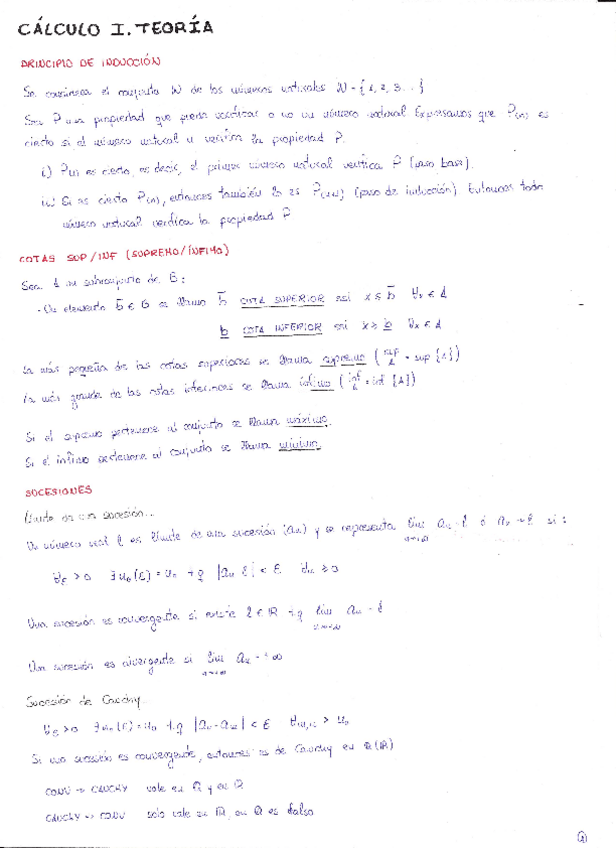 CÁLCULO I. TEORÍA
PRINCIPIO DE INDUCCIÓN
Se considera el conjunto ℕ de los números naturales ℕ = {1, 2, 3...}
Sea P una propiedad que puede verificar o no un número natural. Expresamos que P(n) es
cierto si el número natural n verifica la propiedad P.
i) P(1) es cierto, es decir, el primer número natural verifica P (paso base).
ii) Si es cierto P(n), entonces también lo es P(n+1) (paso de inducción). Entonces todo
número natural verifica la propiedad P
COTAS SUP/INF (SUPREMO/ÍNFIMO)
Sea A un subconjunto de B:
- Un elemento b̅ ∈ B se llama b̅ COTA SUPERIOR si x ≤ b̅ ∀x ∈ A
b COTA INFERIOR si x ≥ b ∀x ∈ A
La más pequeña de las cotas superiores se llama supremo (sup A = sup {A})
La más grande de las cotas inferiores se llama ínfimo (inf A = inf {A})
Si el supremo pertenece al conjunto se llama máximo.
Si el ínfimo pertenece al conjunto se llama mínimo.
SUCESIONES
Límite de una sucesión...
Un número real l es límite de una sucesión (an) y se representa lim n→∞ an = l ó an → l si:
∀ε > 0 ∃ n0(ε) = n0 t.q |an - l| < ε ∀n ≥ n0
Una sucesión es convergente si existe l ∈ ℝ t.q lim n→∞ an = l
Una sucesión es divergente si lim n→∞ an = ±∞
Sucesión de Cauchy
∀ε > 0 ∃ n0(ε) = n0 t.q |an - am| < ε ∀n,m > n0
Si una sucesión es convergente, entonces es de Cauchy en ℚ(ℝ)
CONV → CAUCHY vale en ℚ y en ℝ
CAUCHY → CONV solo vale en ℝ, en ℚ es falso
1